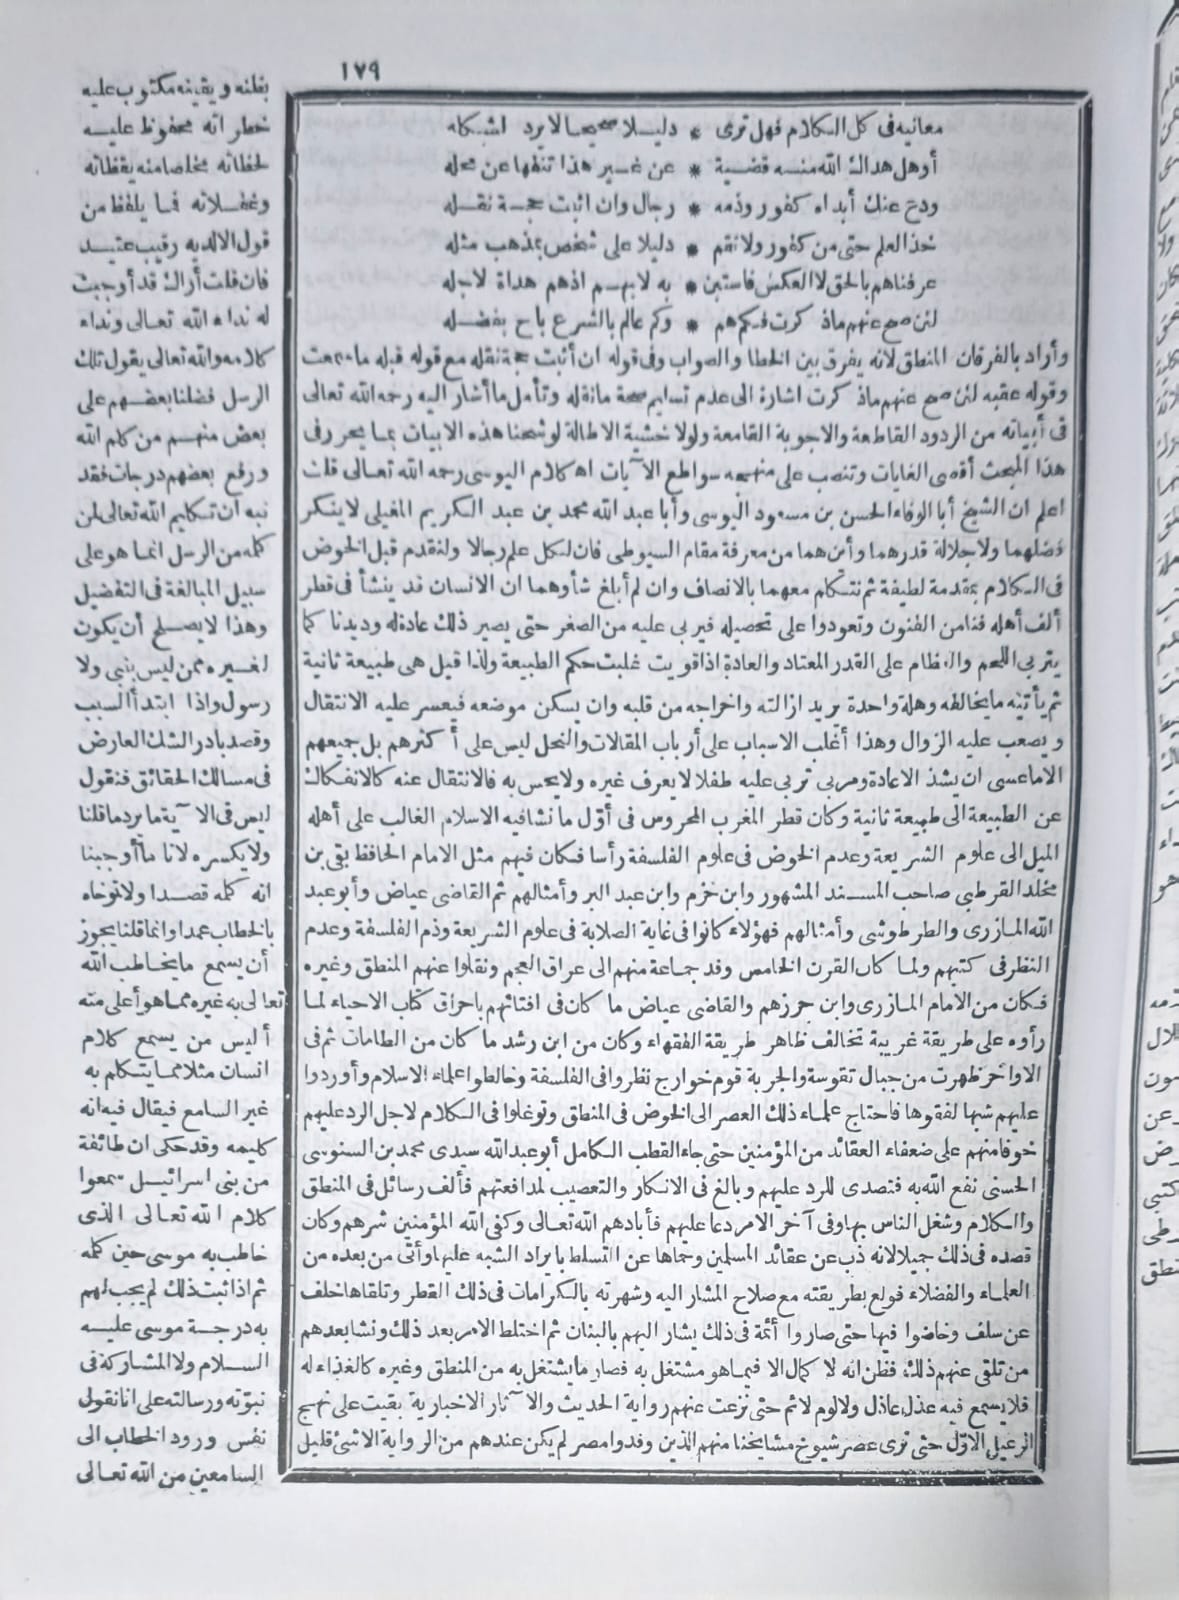 ١٧٩
معانيه في كل الكلام فهل ترى * دليلا صحيحا لا يرد لشكله
أو هل هداك الله منه قضية * عن غير هذا تنفها عن محله
ودع عنك أبداه كفور وذمه * رجال وان اثبت صحة نقله
خذ العلم حتى من كفور ولا تقم * دليلا على شخص بمذهب مثله
عرفناهم بالحق لا العكس فاستبن * به لا بهم اذهم هداة لاجله
لئن صح عنهم ماذكرت فكم هم * وكم عالم بالشرع باح بفضله
وأراد بالفرقان المنطق لانه يفرق بين الخطا والصواب وفى قوله ان أثبت صحة نقله مع قوله قبله ما سمعت
وقوله عقبه لئن صح عنهم ماذكرت اشارة الى عدم تسليم صحة ما نقله وتأمل ما أشار اليه رحمه الله تعالى
فى أبياته من الردود القاطعة والاجوبة القامعة ولولا خشية الاطالة لوشحنا هذه الابيات بما يحرر فى
هذا المبحث أقصى الغايات وتنصب على منهجه سواطع الآيات اه كلام اليوسى رحمه الله تعالى قلت
اعلم ان الشيخ أبا الوفاء الحسن بن مسعود اليوسى وأبا عبد الله محمد بن عبد الكريم المغيلى لا ينكر
فضلهما ولا جلالة قدرهما وأين هما من معرفة مقام السيوطى فان لكل علم رجالا ولنقدم قبل الخوض
فى الكلام بمقدمة لطيفة ثم نتكلم معهما بالانصاف وان لم أبلغ شأوهما ان الانسان قد ينشأ فى قطر
ألف أهله فنا من الفنون وتعودوا على تحصيله فيربى عليه من الصغر حتى يصير ذلك عادة له وديدنا كما
يتربى اللحم والعظام على القدر المعتاد والعادة اذا قويت غلبت حكم الطبيعة ولذا قيل هى طبيعة ثانية
ثم يأتيه ما يخالفه وهلة واحدة يريد ازالته واخراجه من قلبه وان يسكن موضعه فيعسر عليه الانتقال
ويصعب عليه الزوال وهذا أغلب الاسباب على أرباب المقالات والنحل ليس على أكثرهم بل جميعهم
الا ما عسى ان يشذ الاعادة ومربى تربى عليه طفلا لا يعرف غيره ولا يحس به فالانتقال عنه كالانفكاك
عن الطبيعة الى طبيعة ثانية وكان قطر المغرب المحروس فى أول ما نشا فيه الاسلام الغالب على أهله
الميل الى علوم الشريعة وعدم الخوض فى علوم الفلسفة رأسا فكان فيهم مثل الامام الحافظ بقى بن
مخلد القرطبى صاحب المسند المشهور وابن حزم وابن عبد البر وأمثالهم ثم القاضى عياض وأبو عبد
الله المازرى والطرطوشى وأمثالهم فهؤلاء كانوا فى غاية الصلابة فى علوم الشريعة وذم الفلسفة وعدم
النظر فى كتبهم ولما كان القرن الخامس وفد جماعة منهم الى عراق العجم ونقلوا عنهم المنطق وغيره
فكان من الامام المازرى وابن حرزهم والقاضى عياض ما كان فى افتائهم باحراق كتاب الاحياء لما
رأوه على طريقة غريبة تخالف ظاهر طريقة الفقهاء وكان من ابن رشد ما كان من الطامات ثم فى
الاواخر ظهرت من جبال نفوسة والجربة قوم خوارج نظروا فى الفلسفة وخالطوا علماء الاسلام وأوردوا
عليهم شبها لفقوها فاحتاج علماء ذلك العصر الى الخوض فى المنطق وتوغلوا فى الكلام لاجل الرد عليهم
خوفا منهم على ضعفاء العقائد من المؤمنين حتى جاء القطب الكامل أبو عبد الله سيدى محمد بن السنوسى
الحسنى نفع الله به فتصدى للرد عليهم وبالغ فى الانكار والتعصيب لمدافعتهم فألف رسائل فى المنطق
والكلام وشغل الناس بها وفى آخر الامر دعا عليهم فأبادهم الله تعالى وكفى الله المؤمنين شرهم وكان
قصده فى ذلك جميلا لانه ذب عن عقائد المسلمين وحماها عن التسلط بايراد الشبه عليها وأتى من بعده من
العلماء والفضلاء فولع بطريقته مع صلاح المشار اليه وشهرته بالكرامات فى ذلك القطر وتلقاها خلف
عن سلف وخاضوا فيها حتى صاروا أئمة فى ذلك يشار اليهم بالبنان ثم اختلط الامر بعد ذلك ونشا بعدهم
من تلقى عنهم ذلك فظن انه لا كمال الا فيما هو مشتغل به فصار ما يشتغل به من المنطق وغيره كالغذاء له
فلا يسمع فيه عذل عاذل ولا لوم لائم حتى نزعت عنهم رواية الحديث والآثار الاخبارية بقيت على نهج
الرعيل الاول حتى ترى عصر شيوخ مشايخنا منهم الذين وفدوا مصر لم يكن عندهم من الرواية الا شئ قليل
بفلته ويقينه مكتوب عليه
خطر انه محفوظ عليه
لحظاته مخلصا منه يقظاته
وغفلاته فما يلفظ من
قول الا لديه رقيب عتيد
فان قلت أراك قد أوجبت
له نداء الله تعالى ونداء
كلامه والله تعالى يقول تلك
الرسل فضلنا بعضهم على
بعض منهم من كلم الله
ورفع بعضهم درجات فقد
نبه ان تكليم الله تعالى لمن
كلمه من الرسل انما هو على
سبيل المبالغة فى التفضيل
وهذا لا يصلح أن يكون
لغيره ممن ليس بنبى ولا
رسول واذا ابتدأ السبب
وقصد بادر الشك العارض
فى مسالك الحقائق فنقول
ليس فى الآية ما يرد ما قلنا
ولا يكسره لانا ما أوجبنا
انه كلمه قصدا ولا توخاه
بالخطاب عمدا وانما قلنا يجوز
أن يسمع ما يخاطب الله
تعالى به غيره مما هو أعلى منه
أليس من يسمع كلام
انسان مثلا مما يتكلم به
غير السامع فيقال فيه انه
كليمه وقد حكى ان طائفة
من بنى اسرائيل سمعوا
كلام الله تعالى الذى
خاطب به موسى حين كلمه
ثم اذا ثبت ذلك لم يجب لهم
به درجة موسى عليه
السلام ولا المشاركة فى
نبوته ورسالته على انا نقول
نفس ورود الخطاب الى
السامعين من الله تعالى